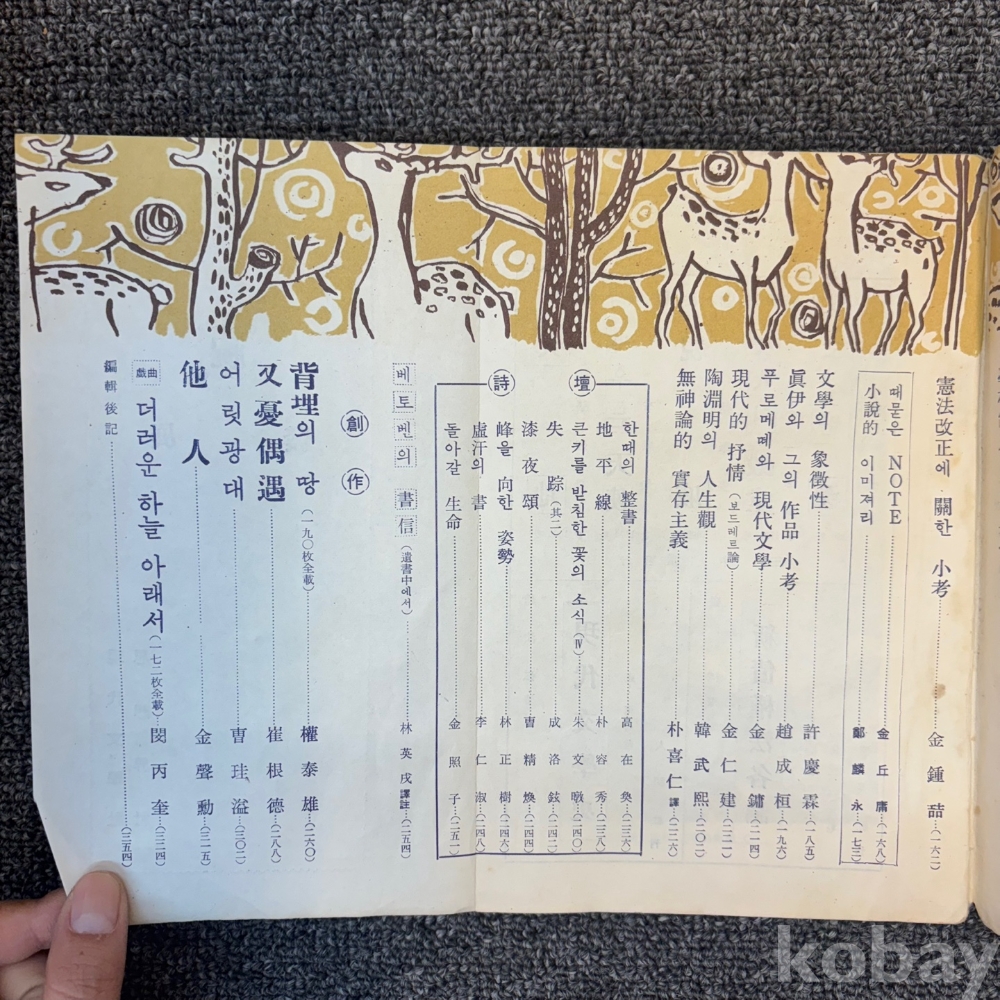 憲法改正에 關한 小考 金鍾喆 (一六二)
때묻은 NOTE 金丘庸 (一六八)
小說的 이미져리 鄭麟永 (一七三)
文學의 象徵性 許慶霖 (一八五)
眞伊와 그의 作品 小考 趙成桓 (一九六)
푸로메떼와 現代文學 金鏞 (二一四)
現代的 抒情 (보드레르論) 金仁建 (二二一)
陶淵明의 人生觀 韓武熙 (二〇二)
無神論的 實存主義 朴喜仁 譯 (二二六)
詩壇
한때의 整書 高在奐 (二三六)
地平線 朴容秀 (二三八)
큰키를 받침한 꽃의 소식 (Ⅳ) 朱文暾 (二四〇)
失踪 (其二) 成洛鉉 (二四二)
漆夜頌 曺精煥 (二四五)
峰을 向한 姿勢 林正樹 (二四六)
虛汗의 書 李仁淑 (二四八)
돌아갈 生命 金照子 (二五一)
베토벤의 書信 (遺書中에서) 林英戌 譯註 (二五四)
創作
背理의 땅 (一九〇枚全載) 權泰雄 (二六〇)
又憂偶遇 崔根德 (二八八)
어릿광대 曺珪溢 (三〇二)
他人 金聲勳 (三一五)
戱曲 더러운 하늘 아래서 (一七二枚全載) 閔丙奎 (三二四)
編輯後記 (三五四)
kobay